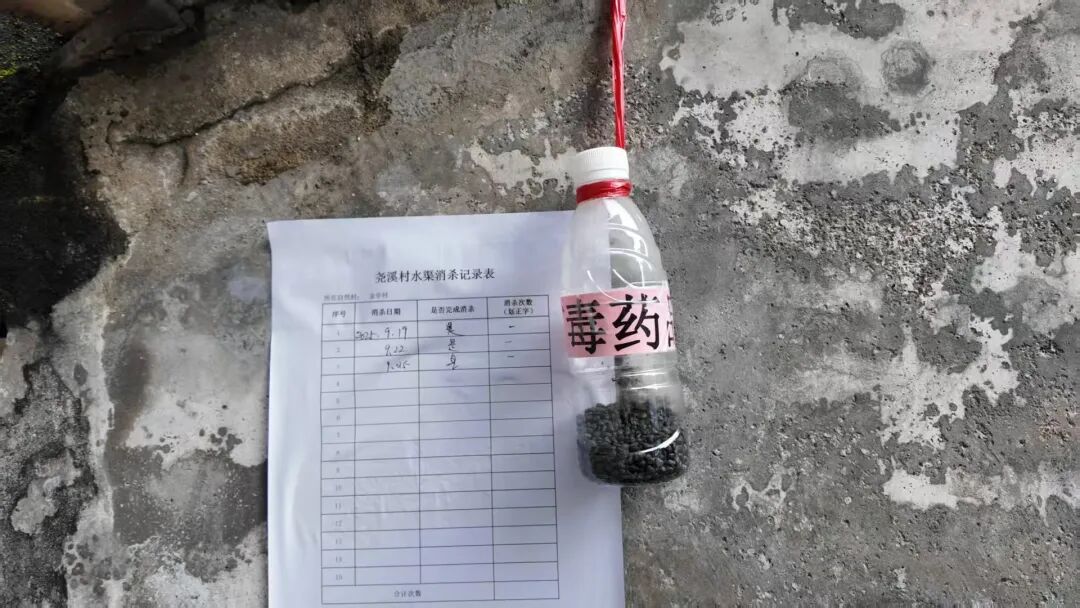 尧溪村水渠消杀记录表
所在自然村：
序号 消杀日期 是否完成消杀 消杀次数（划正字）
1 2025.9.19 是 一
2 9.22 是 一
3 是 一
4
5
6
7
8
9
10
11
12
13
14
15
合计次数
毒药